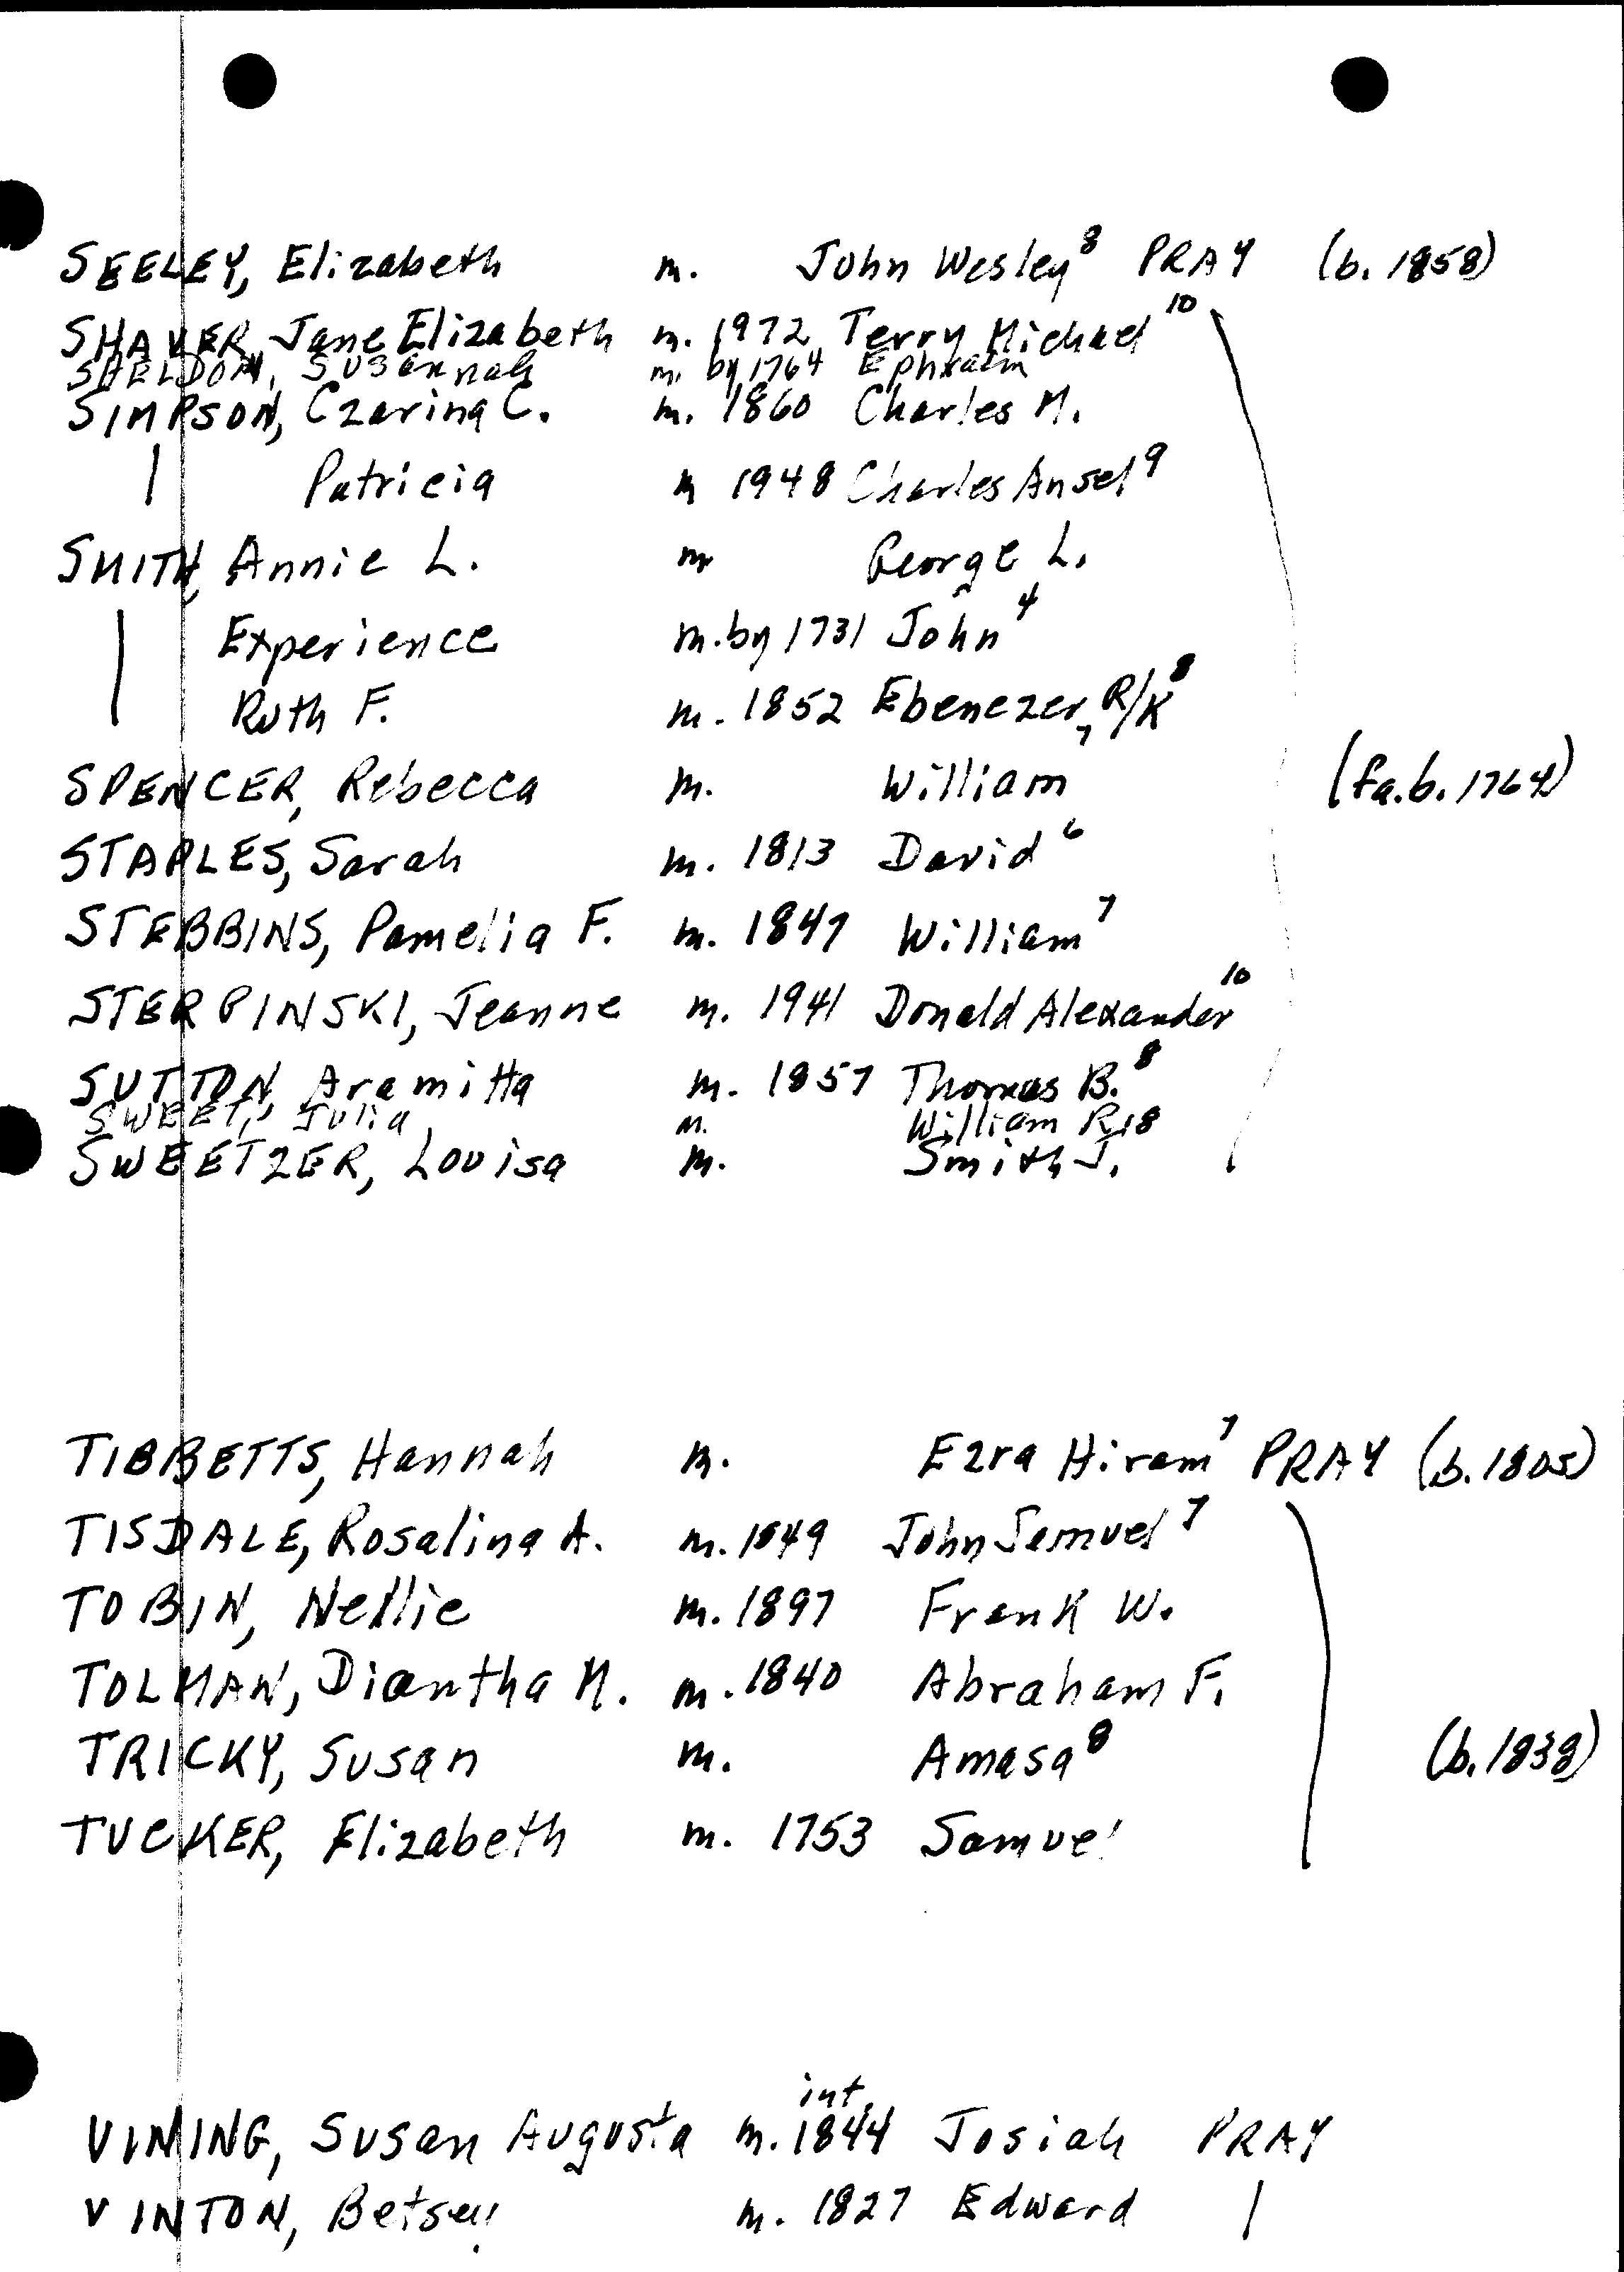 SEELEY, Elizabeth m. John Wesley⁸ PRAY (b. 1858)
SHAVER, Jane Elizabeth m. 1972 Terry Michael¹⁰
SHELDON, Susannah m. by 1764 Ephraim
SIMPSON, Czarina C. m. 1860 Charles M.
Patricia m 1948 Charles Ansel⁹
SMITH, Annie L. m George L.
Experience m. by 1731 John⁴
Ruth F. m. 1852 Ebenezer, R/K⁸
SPENCER, Rebecca m. William⁷ (fa. b. 1764)
STAPLES, Sarah m. 1813 David⁶
STEBBINS, Pamelia F. m. 1847 William⁷
STERPINSKI, Jeanne m. 1941 Donald Alexander¹⁰
SUTTON, Aramitta m. 1857 Thomas B.⁸
SWEET, Julia m. William R.⁸
SWEETZER, Louisa m. Smith J.
TIBBETTS, Hannah m. Ezra Hiram⁷ PRAY (b. 1805)
TISDALE, Rosalina A. m. 1849 John Samuel⁷
TOBIN, Nellie m. 1897 Frank W.
TOLMAN, Diantha M. m. 1840 Abraham F.
TRICKY, Susan m. Amasa⁸ (b. 1838)
TUCKER, Elizabeth m. 1753 Samuel
int.
VINING, Susan Augusta m. 1844 Josiah PRAY
VINTON, Betsey m. 1827 Edward